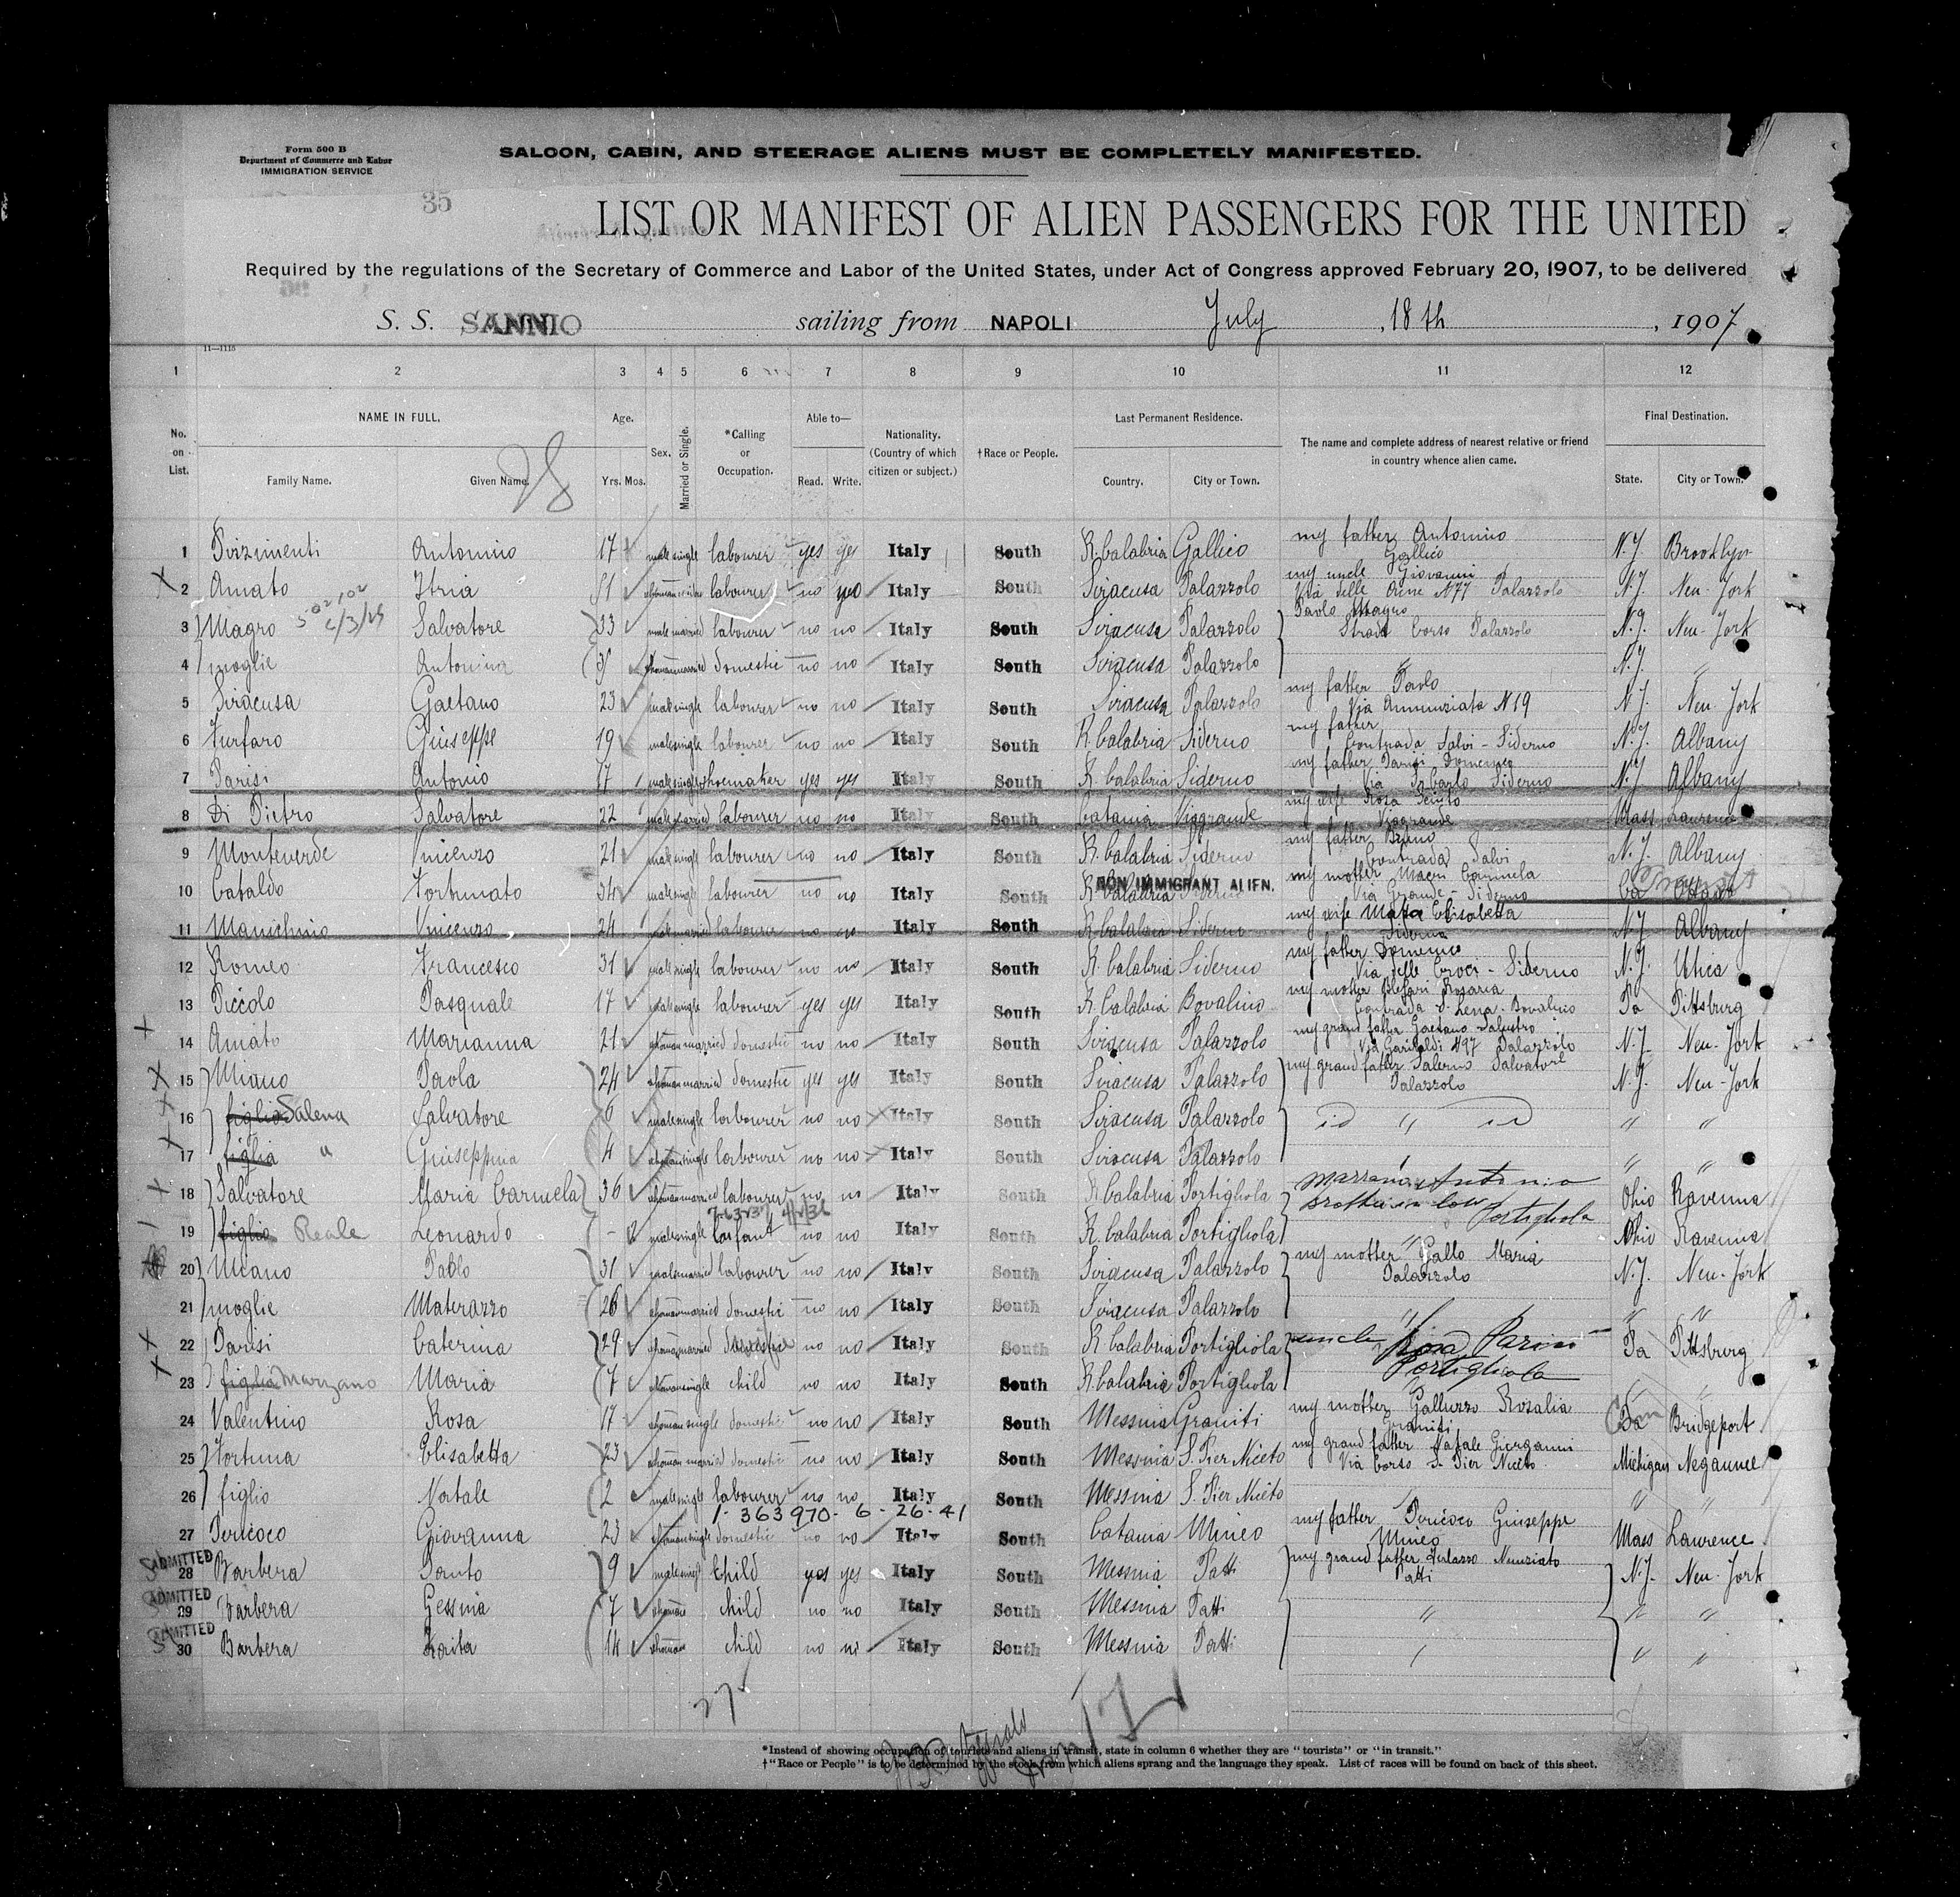 Form 500 B
Department of Commerce and Labor
IMMIGRATION SERVICE
SALOON, CABIN, AND STEERAGE ALIENS MUST BE COMPLETELY MANIFESTED.
35
LIST OR MANIFEST OF ALIEN PASSENGERS FOR THE UNITED
Required by the regulations of the Secretary of Commerce and Labor of the United States, under Act of Congress approved February 20, 1907, to be delivered
S. S. SANNIO sailing from NAPOLI July , 18th , 1907
11—1115
1 2 3 4 5 6 7 8 9 10 11 12
No. on List. NAME IN FULL. Family Name. Given Name. Age. Yrs. Mos. Sex. Married or Single. *Calling or Occupation. Able to— Read. Write. Nationality. (Country of which citizen or subject.) †Race or People. Last Permanent Residence. Country. City or Town. The name and complete address of nearest relative or friend in country whence alien came. Final Destination. State. City or Town.
1 Antonino 17 male single labourer yes yes Italy South R. Calabria Gallico my father Antonino Gallico N.Y. Brooklyn
2 Amato Itria labourer no yes Italy South Siracusa Palazzolo my uncle Giovanni Via delle N77 Palazzolo N.Y. New-York
3 Magro Salvatore 33 male married labourer no no Italy South Siracusa Palazzolo Paolo Magro Strada Corso Palazzolo N.Y. New-York
4 moglie Antonina married domestic no no Italy South Siracusa Palazzolo " N.Y. "
5 Siracusa Gaetano 23 male single labourer no no Italy South Siracusa Palazzolo my father Paolo Via Annunziata N19 N.Y. New York
6 Furfaro Giuseppe 19 male single labourer no no Italy South R. Calabria Siderno my father Contrada Salvi - Siderno N.Y. Albany
7 Parisi Antonio 17 male single shoemaker yes yes Italy South R. Calabria Siderno my father Parisi Domenico Via Siderno N.Y. Albany
8 Di Pietro Salvatore 22 male married labourer no no Italy South Catania Viagrande my wife Rosa Viagrande Mass Laurence
9 Monteverde Vincenzo 21 male single labourer no no Italy South R. Calabria Siderno my father Bruno Contrada Salvi N.Y. Albany
10 Cataldo Fortunato 34 male single labourer no no Italy South R. Calabria NON IMMIGRANT ALIEN. my mother Macri Carmela Via Grande - Siderno
11 Manichino Vincenzo 24 male married labourer no no Italy South R. Calabria Siderno my wife Elisabetta Siderno N.Y. Albany
12 Romeo Francesco 31 male single labourer no no Italy South R. Calabria Siderno my father Domenico Via delle Croci - Siderno N.Y. Utica
13 Piccolo Pasquale 17 male single labourer yes yes Italy South R. Calabria Bovalino my mother Blefari Rosaria Contrada S. Lena - Bovalino Pa Pittsburg
14 Amato Marianna 21 woman married domestic no no Italy South Siracusa Palazzolo my grand father Gaetano Via Garibaldi N97 Palazzolo N.Y. New-York
15 Miano Paola 24 woman married domestic yes yes Italy South Siracusa Palazzolo my grand father Salerno Salvatore Palazzolo N.Y. New-York
16 figlio Salena Salvatore 6 male single labourer no no Italy South Siracusa Palazzolo id " id " "
17 figlia " Giuseppina 4 woman single labourer no no Italy South Siracusa Palazzolo " "
18 Salvatore Maria Carmela 36 woman married labourer no no Italy South R. Calabria Portigliola Antonio brother in low Portigliola Ohio Ravenna
19 figlio Reale Leonardo male single infant no no Italy South R. Calabria Portigliola " Ohio Ravenna
20 Miano Paolo 31 male married labourer no no Italy South Siracusa Palazzolo my mother Gallo Maria Palazzolo N.Y. New-York
21 moglie Materazzo 26 woman married domestic no no Italy South Siracusa Palazzolo " " "
22 Parisi Caterina 29 woman married domestic no no Italy South R. Calabria Portigliola uncle Parisi Portigliola Pa Pittsburg
23 figlia Marzano Maria 7 woman single child no no Italy South R. Calabria Portigliola " "
24 Valentino Rosa 17 woman single domestic no no Italy South Messina Graniti my mother Galluzzo Rosalia Graniti Bridgeport
25 Fortuna Elisabetta 23 woman married domestic no no Italy South Messina S. Pier Niceto my grand father Natale Giorgianni Via Corso S. Pier Niceto Michigan Negaunee
26 figlio Natale 2 male single labourer no no Italy South Messina S. Pier Niceto " "
1-363970-6-26-41
27 Pericoco Giovanna 23 woman single domestic no no Italy South Catania Mineo my father Pericoco Giuseppe Mineo Mass Laurence
ADMITTED 28 Barbera Santo 9 male single Child yes yes Italy South Messina Patti my grand father Nunziato Patti N.Y. New-York
ADMITTED 29 Barbera Gessina 7 woman child no no Italy South Messina Patti " " "
ADMITTED 30 Barbera 14 woman child no no Italy South Messina Patti " " "
*Instead of showing occupation of tourists and aliens in transit, state in column 6 whether they are "tourists" or "in transit."
†"Race or People" is to be determined by the stock from which aliens sprang and the language they speak. List of races will be found on back of this sheet.